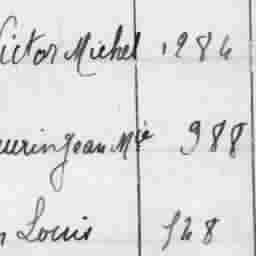 Victor Michel 1284
uerin Jean Mie 988
n Louis 528